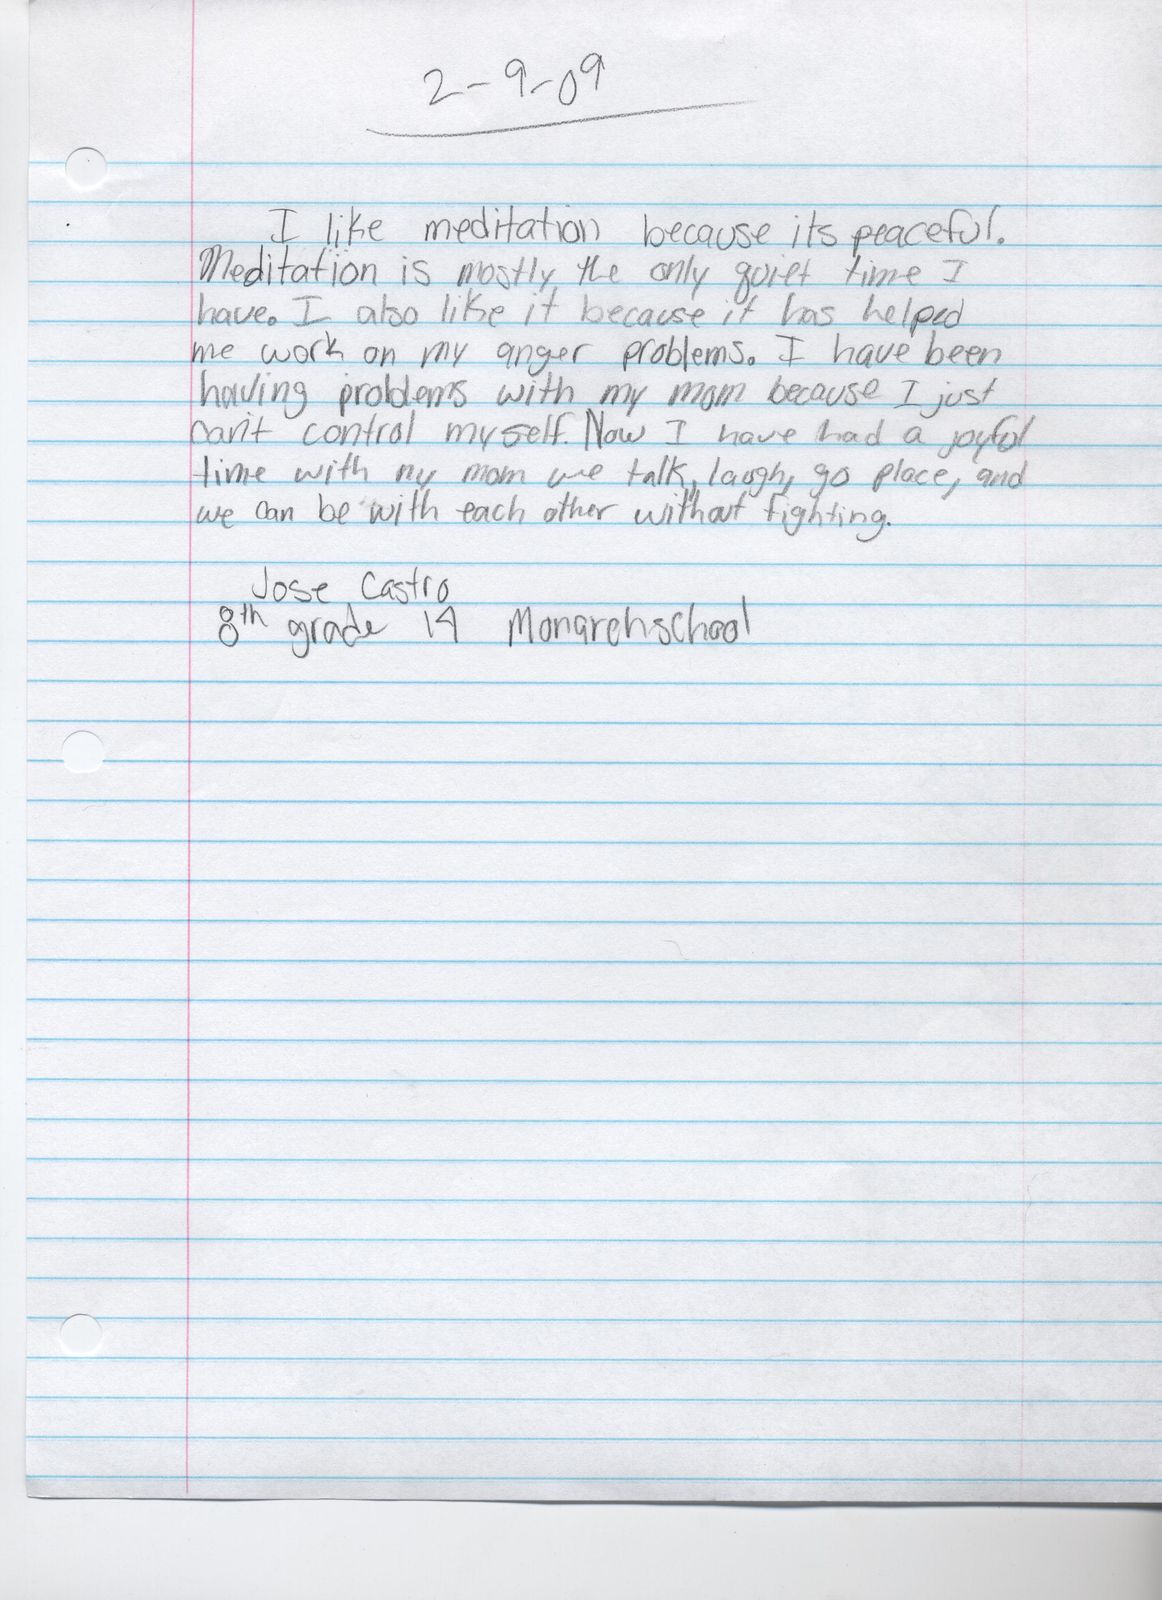 2-9-09
I like meditation because its peaceful.
Meditation is mostly the only quiet time I
have. I also like it because it has helped
me work on my anger problems. I have been
having problems with my mom because I just
can't control myself. Now I have had a joyful
time with my mom we talk, laugh, go place, and
we can be with each other without fighting.
Jose Castro
8th grade 14 Monarchschool